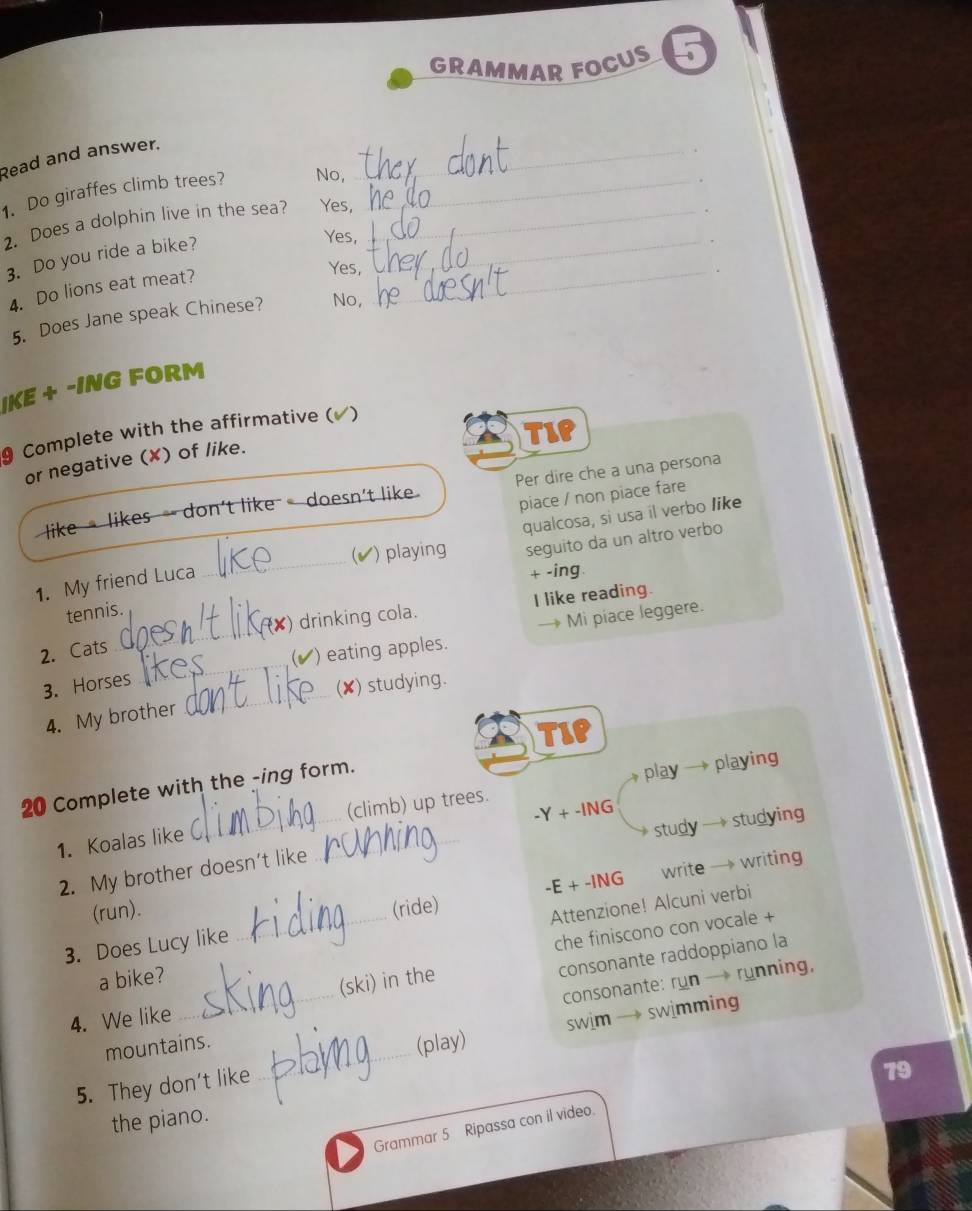 GRAMMAR FOCUS 5
Read and answer.
1. Do giraffes climb trees? No, they dont .
2. Does a dolphin live in the sea? Yes, he do .
3. Do you ride a bike? Yes, I do .
4. Do lions eat meat? Yes, they do .
5. Does Jane speak Chinese? No, he doesn't .
IKE + -ING FORM
9 Complete with the affirmative (✓)
or negative (✗) of like.
like • likes • don't like • doesn't like
1. My friend Luca like (✓) playing
tennis.
2. Cats doesn't like (✗) drinking cola.
3. Horses likes (✓) eating apples.
4. My brother don't like (✗) studying.
TIP
Per dire che a una persona
piace / non piace fare
qualcosa, si usa il verbo like
seguito da un altro verbo
+ -ing.
I like reading.
→ Mi piace leggere.
20 Complete with the -ing form.
1. Koalas like climbing (climb) up trees.
2. My brother doesn't like running
(run).
3. Does Lucy like riding (ride)
a bike?
4. We like sking (ski) in the
mountains.
5. They don't like (play)
the piano.
TIP
-Y + -ING
play → playing
study → studying
-E + -ING write → writing
Attenzione! Alcuni verbi
che finiscono con vocale +
consonante raddoppiano la
consonante: run → running,
swim → swimming
79
Grammar 5 Ripassa con il video.